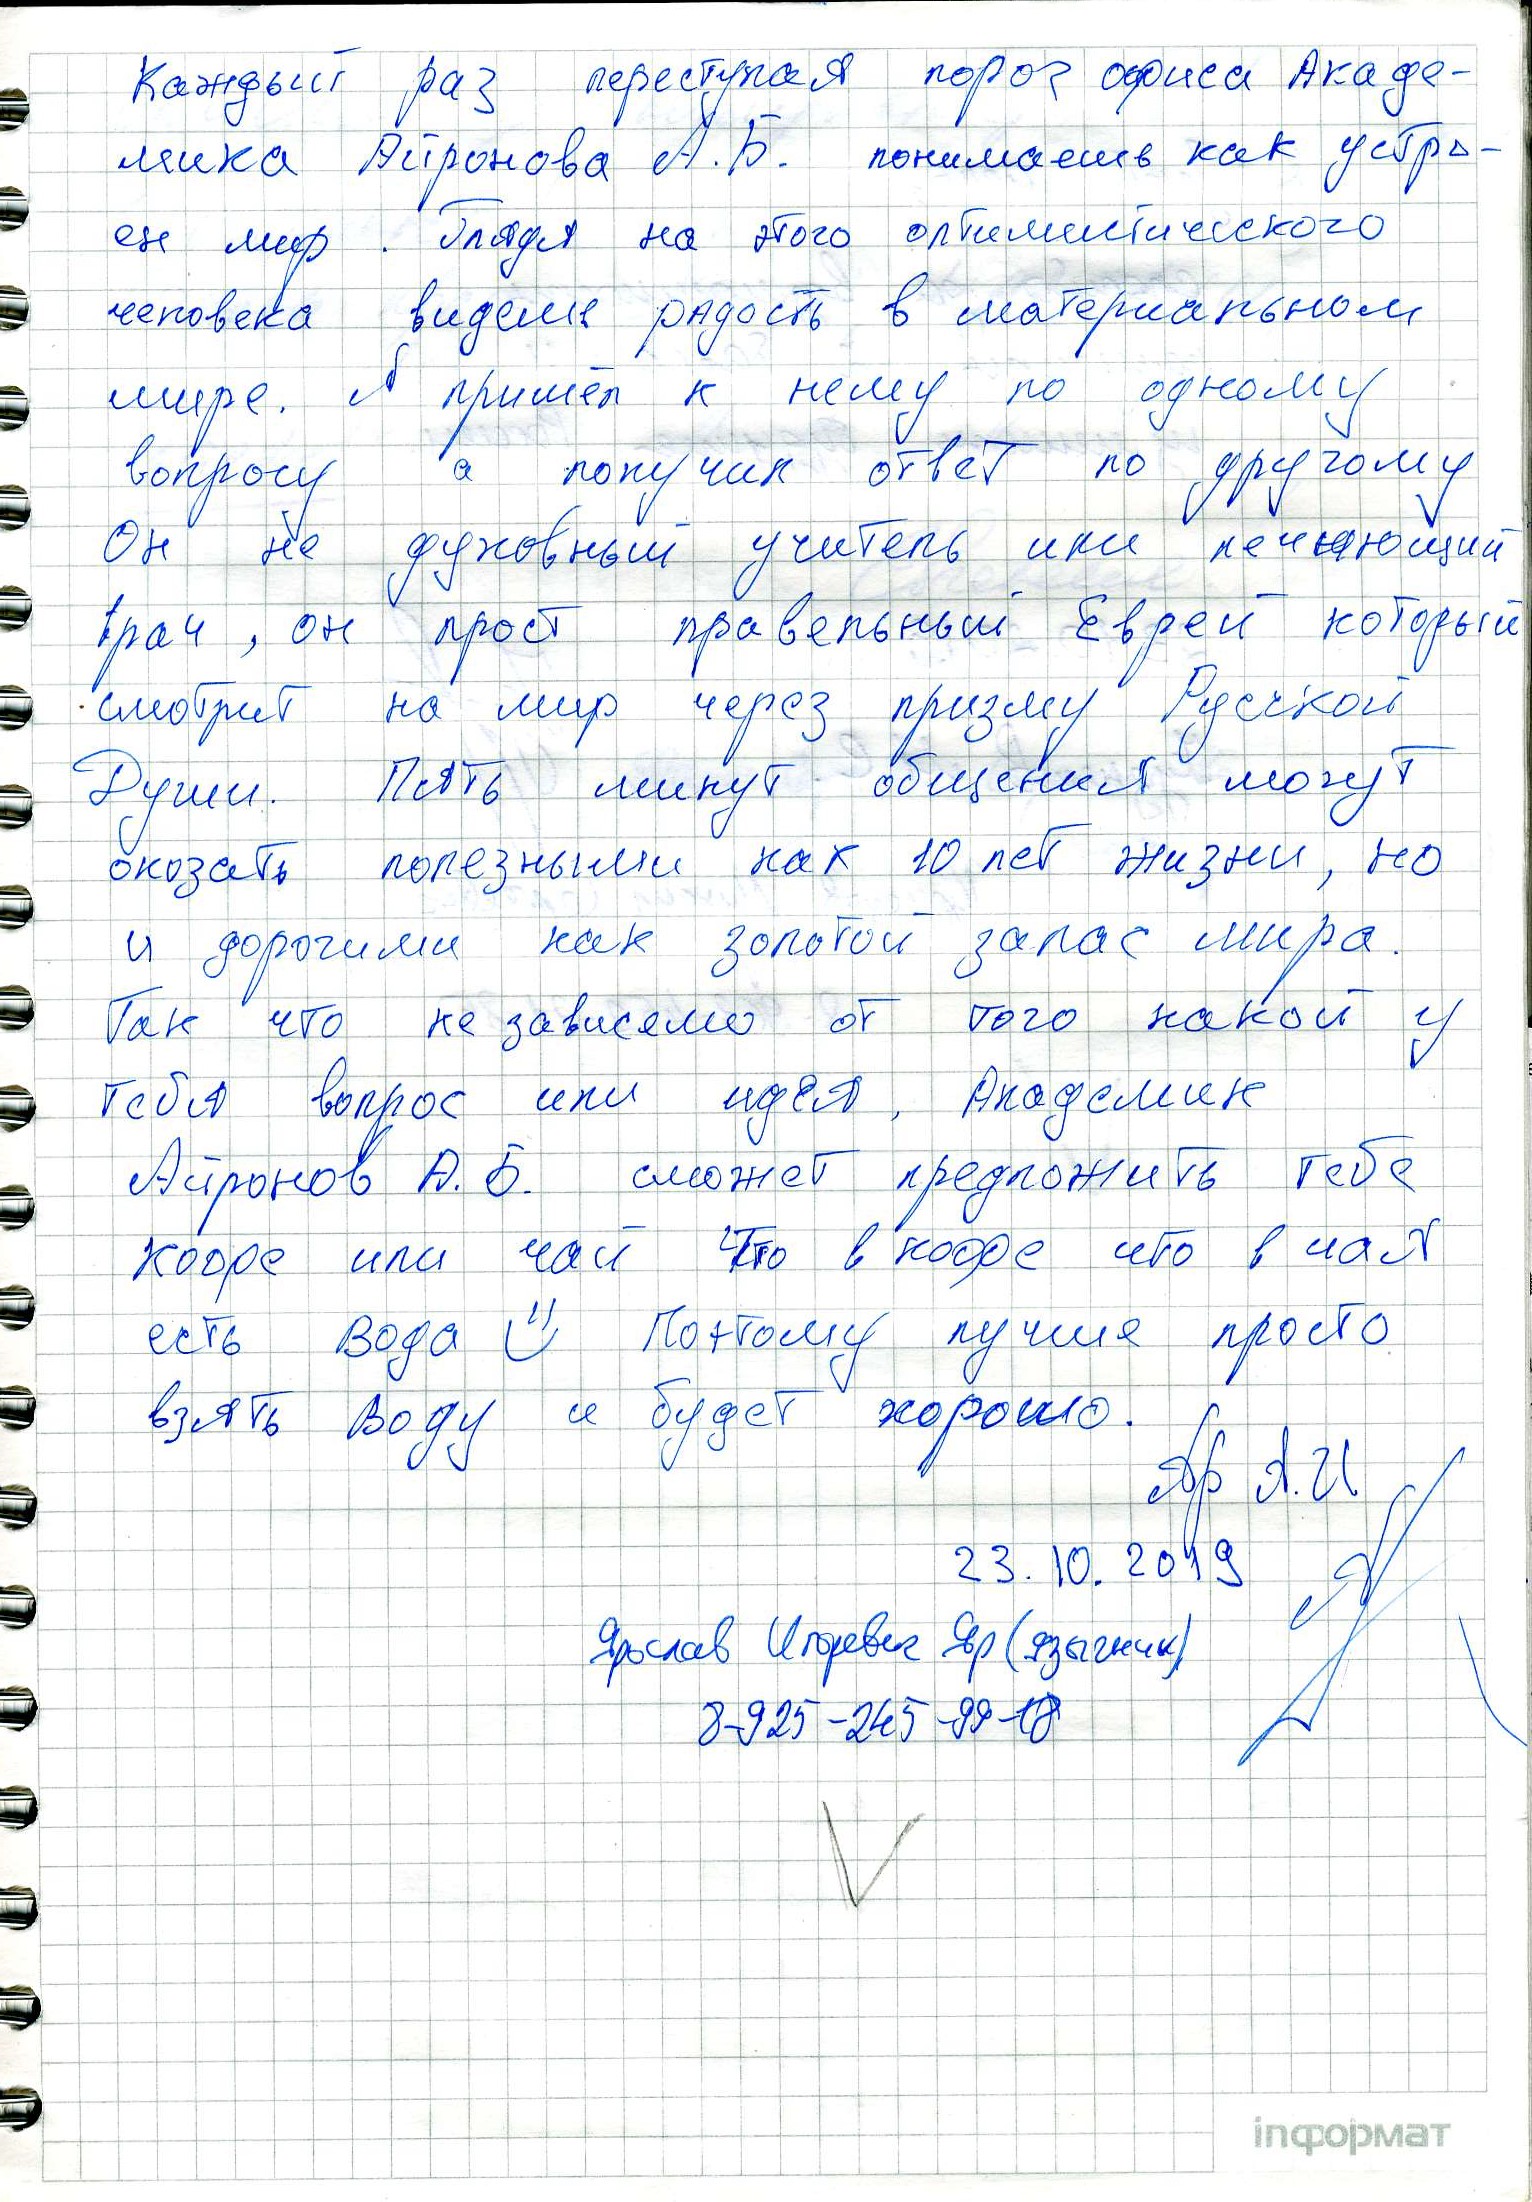 Каждый раз переступая порог офиса Акаде-
мика Айронова А.Б. понимаешь как устро-
ен мир. Глядя на этого оптимистического
человека видешь радость в материальном
мире. Я пришёл к нему по одному
вопросу а получил ответ по другому
Он не духовный учитель или лечующий
врач, он прост правельный Еврей который
смотрит на мир через призму Русской
Души. Пять минут общения могут
оказать полезными как 10 лет жизни, но
и дорогими как золотой запас мира.
Так что не зависемо от того какой у
тебя вопрос или идея, Академик
Айронов А.Б. сможет предложить тебе
кофе или чай Что в кофе что в чая
есть Вода Поэтому лучше просто
взять Воду и будет хорошо.
Яр А.И
23.10.2019
Ярослав Игоревич Яр (язычник)
8-925-245-99-18
inформат